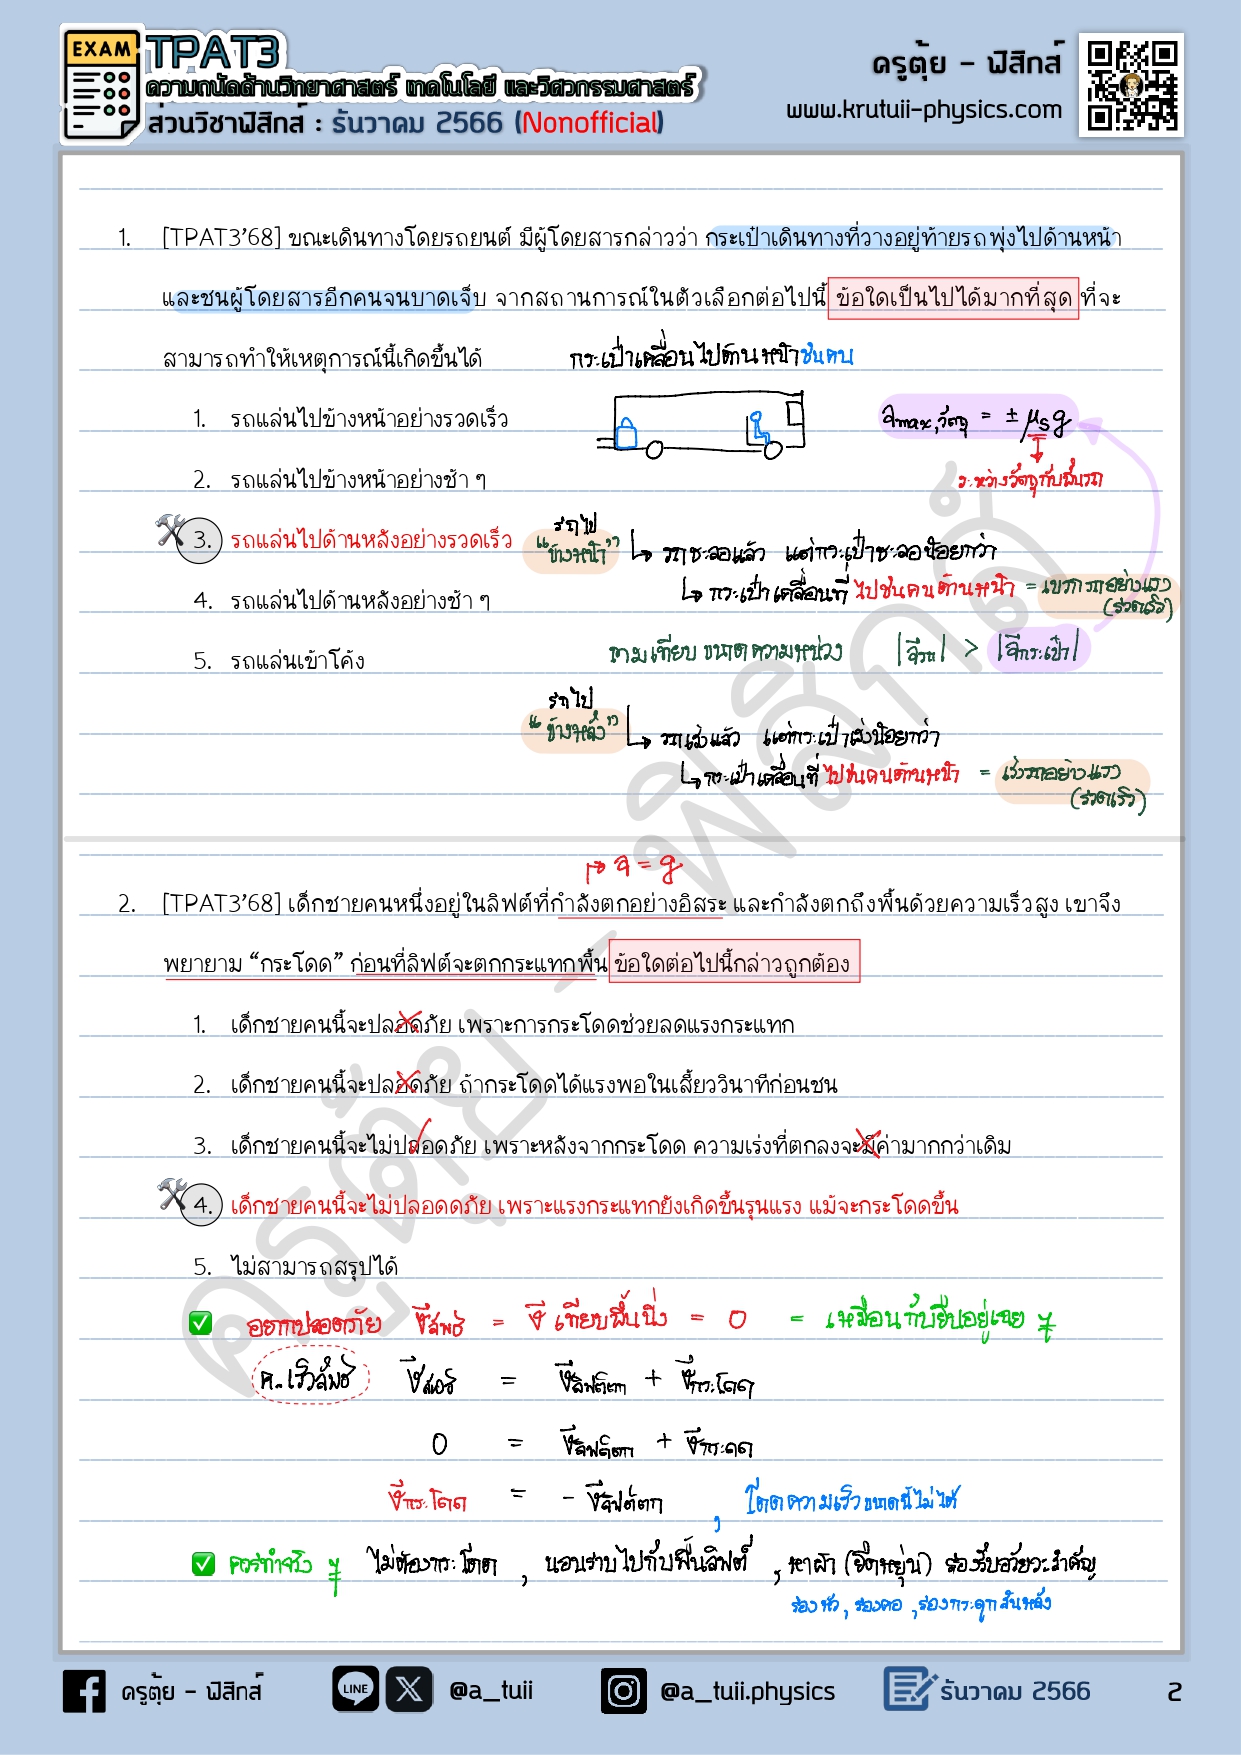 EXAM
TPAT3
ความถนัดด้านวิทยาศาสตร์ เทคโนโลยี และวิศวกรรมศาสตร์
ส่วนวิชาฟิสิกส์ : ธันวาคม 2566 (Nonofficial)
ครูตุ้ย - ฟิสิกส์
www.krutuii-physics.com
1. [TPAT3'68] ขณะเดินทางโดยรถยนต์ มีผู้โดยสารกล่าวว่า กระเป๋าเดินทางที่วางอยู่ท้ายรถพุ่งไปด้านหน้า
และชนผู้โดยสารอีกคนจนบาดเจ็บ จากสถานการณ์ในตัวเลือกต่อไปนี้ ข้อใดเป็นไปได้มากที่สุด ที่จะ
สามารถทำให้เหตุการณ์นี้เกิดขึ้นได้
กระเป๋าเคลื่อนไปด้านหน้าชนคน
1. รถแล่นไปข้างหน้าอย่างรวดเร็ว
a max,วัตถุ = ± μs g
2. รถแล่นไปข้างหน้าอย่างช้า ๆ
ระหว่างวัตถุกับพื้นรถ
3. รถแล่นไปด้านหลังอย่างรวดเร็ว
รถไป "ข้างหน้า"
รถชะลอแล้ว แต่กระเป๋าชะลอน้อยกว่า
4. รถแล่นไปด้านหลังอย่างช้า ๆ
กระเป๋าเคลื่อนที่ ไปชนคนด้านหน้า = เบรกรถอย่างแรง (รวดเร็ว)
5. รถแล่นเข้าโค้ง
ถามเทียบ ขนาดความหน่วง |a รถ| > |a กระเป๋า|
รถไป "ข้างหลัง"
รถเร่งแล้ว แต่กระเป๋าเร่งน้อยกว่า
กระเป๋าเคลื่อนที่ ไปชนคนด้านหน้า = เร่งรถอย่างแรง (รวดเร็ว)
a = g
2. [TPAT3'68] เด็กชายคนหนึ่งอยู่ในลิฟต์ที่กำลังตกอย่างอิสระ และกำลังตกถึงพื้นด้วยความเร็วสูง เขาจึง
พยายาม “กระโดด” ก่อนที่ลิฟต์จะตกกระแทกพื้น ข้อใดต่อไปนี้กล่าวถูกต้อง
1. เด็กชายคนนี้จะปลอดภัย เพราะการกระโดดช่วยลดแรงกระแทก
2. เด็กชายคนนี้จะปลอดภัย ถ้ากระโดดได้แรงพอในเสี้ยววินาทีก่อนชน
3. เด็กชายคนนี้จะไม่ปลอดภัย เพราะหลังจากกระโดด ความเร่งที่ตกลงจะมีค่ามากกว่าเดิม
4. เด็กชายคนนี้จะไม่ปลอดดภัย เพราะแรงกระแทกยังเกิดขึ้นรุนแรง แม้จะกระโดดขึ้น
5. ไม่สามารถสรุปได้
อยากปลอดภัย v ลัพธ์ = v เทียบพื้นนิ่ง = 0 = เหมือนกับยืนอยู่เฉย ๆ
ค.เร็วลัพธ์ v ลัพธ์ = v ลิฟต์ตก + v กระโดด
0 = v ลิฟต์ตก + v กระโดด
v กระโดด = - v ลิฟต์ตก , โดดความเร็วขนาดนี้ไม่ได้
ควรทำจริง ๆ ไม่ต้องกระโดด , นอนราบไปกับพื้นลิฟต์ , หาผ้า (ยืดหยุ่น) รองรับอวัยวะสำคัญ
รองหัว , รองคอ , รองกระดูกสันหลัง
ครูตุ้ย - ฟิสิกส์
ครูตุ้ย - ฟิสิกส์
LINE
@a_tuii
@a_tuii.physics
ธันวาคม 2566
2